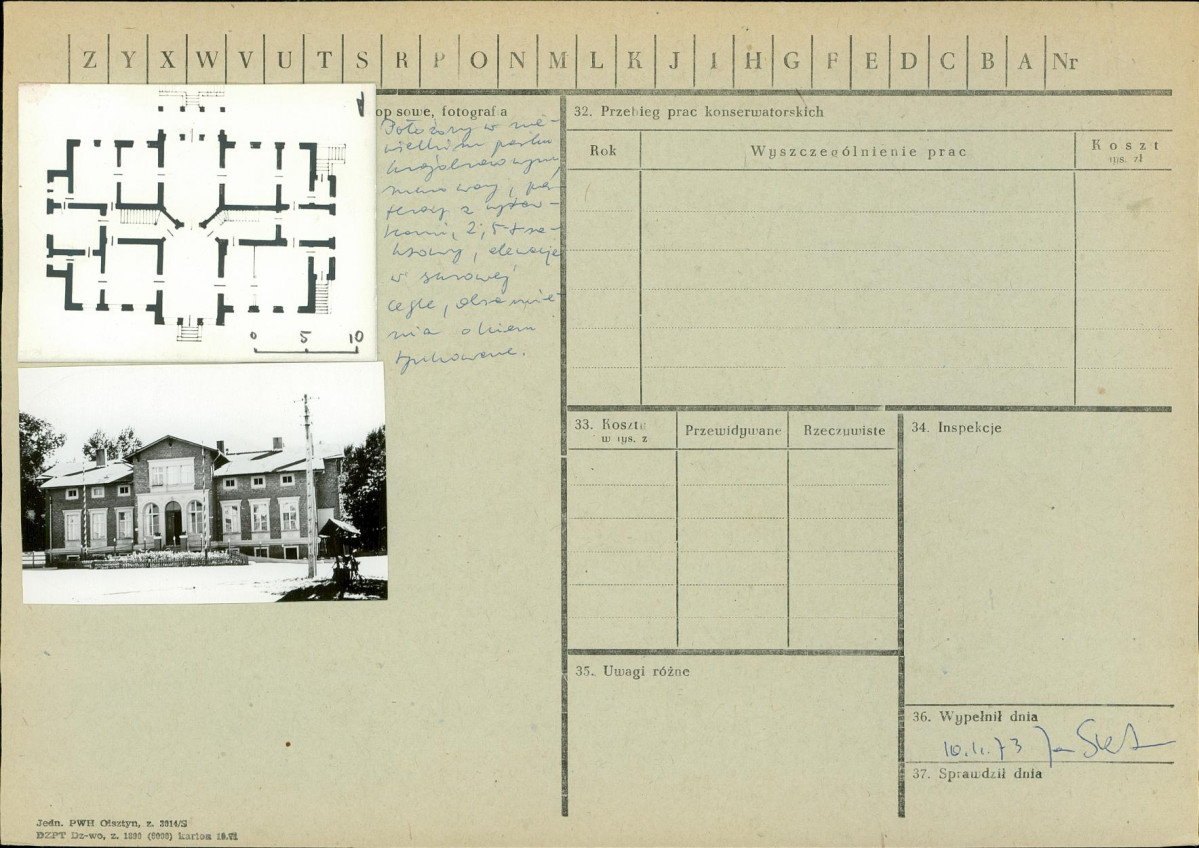 Z Y X W V U T S R P O N M L K J I H G F E D C B A Nr
opisowe, fotografia
Położony w nie-
wielkim parku
krajobrazowym
murowany, par-
terowy z wystaw-
kami, 2,5-trak-
towy, elewacje
w surowej
cegle, obramie-
nia okien
tynkowane.
0 2 10
32. Przebieg prac konserwatorskich
Rok
Wyszczególnienie prac
Koszt
tys. zł
33. Koszty
w tys. z
Przewidywane
Rzeczywiste
34. Inspekcje
35. Uwagi różne
36. Wypełnił dnia
37. Sprawdził dnia
Jedn. PWH Olsztyn, z. 3014/S
DZPT Dz-wo, z. 1890 (6000) karton